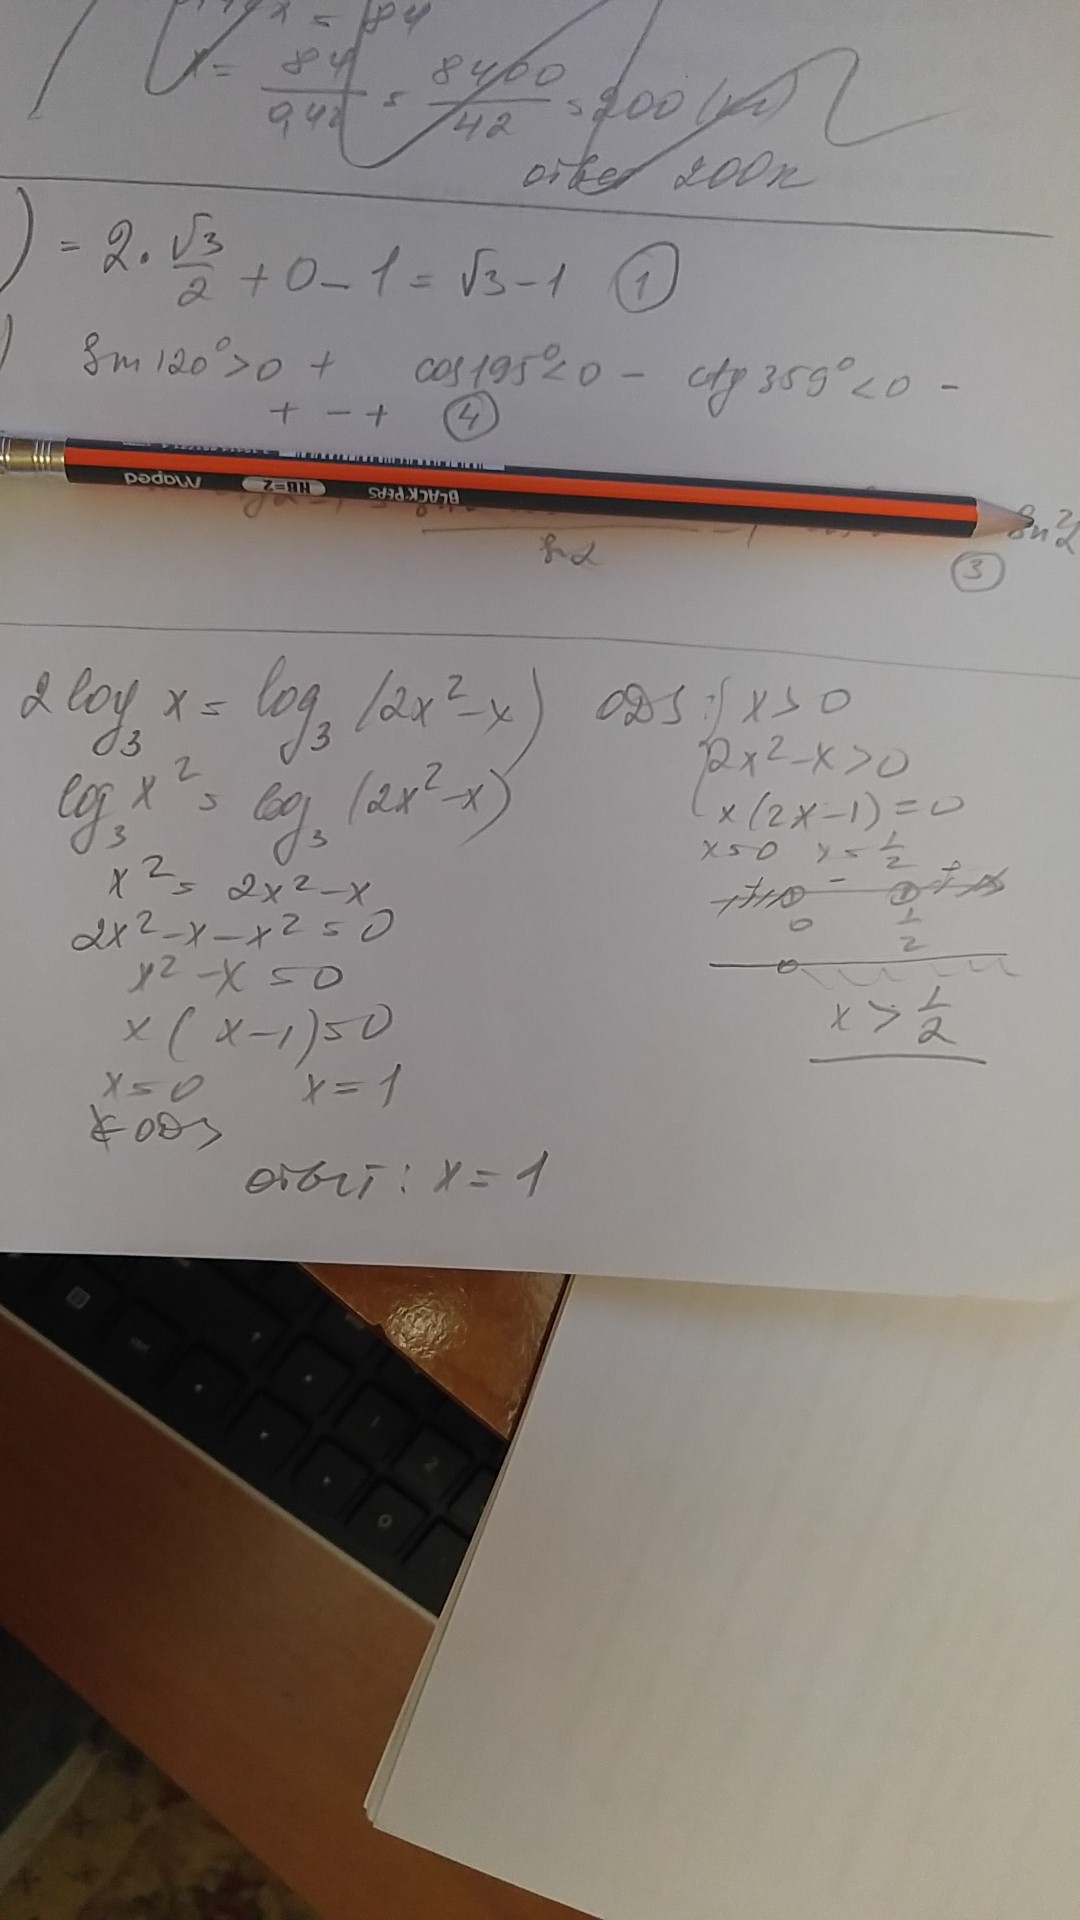 x = 84
x = 84/0,42 = 8400/42 = 200 (км)
ответ 200к
) = 2 · √3/2 + 0 − 1 = √3 − 1 ①
) sin 120° > 0 + cos 195° < 0 − ctg 359° < 0 −
+ − + ④
Maped HB=2 BLACK'PEPS
sin²α
sin α
③
2 log₃ x = log₃ (2x² − x)
log₃ x² = log₃ (2x² − x)
x² = 2x² − x
2x² − x − x² = 0
x² − x = 0
x ( x − 1) = 0
x = 0 x = 1
∉ ОДЗ
ответ : x = 1
ОДЗ : { x > 0
2x² − x > 0
x (2x − 1) = 0
x = 0 x = 1/2
+ − +
0 1/2
x > 1/2